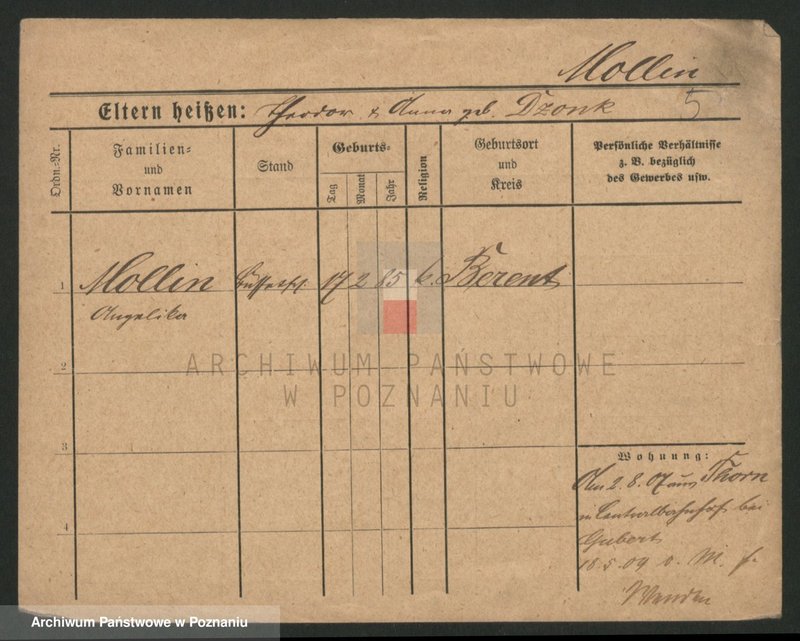 Mollin
5
Eltern heißen: Theodor & Anna geb. Dzonk
Ordn.=Nr.
Familien=
und
Vornamen
Stand
Geburts=
Tag
Monat
Jahr
Religion
Geburtsort
und
Kreis
Persönliche Verhältnisse
z. B. bezüglich
des Gewerbes usw.
1
Mollin
17 2 85
Berent
Angelika
2
ARCHIWUM PAŃSTWOWE
W POZNANIU
3
Wohnung:
2.8.07 aus Thorn
Centralbahnhof bei
Gubert
4
18.5.09 v. M. f.
Archiwum Państwowe w Poznaniu